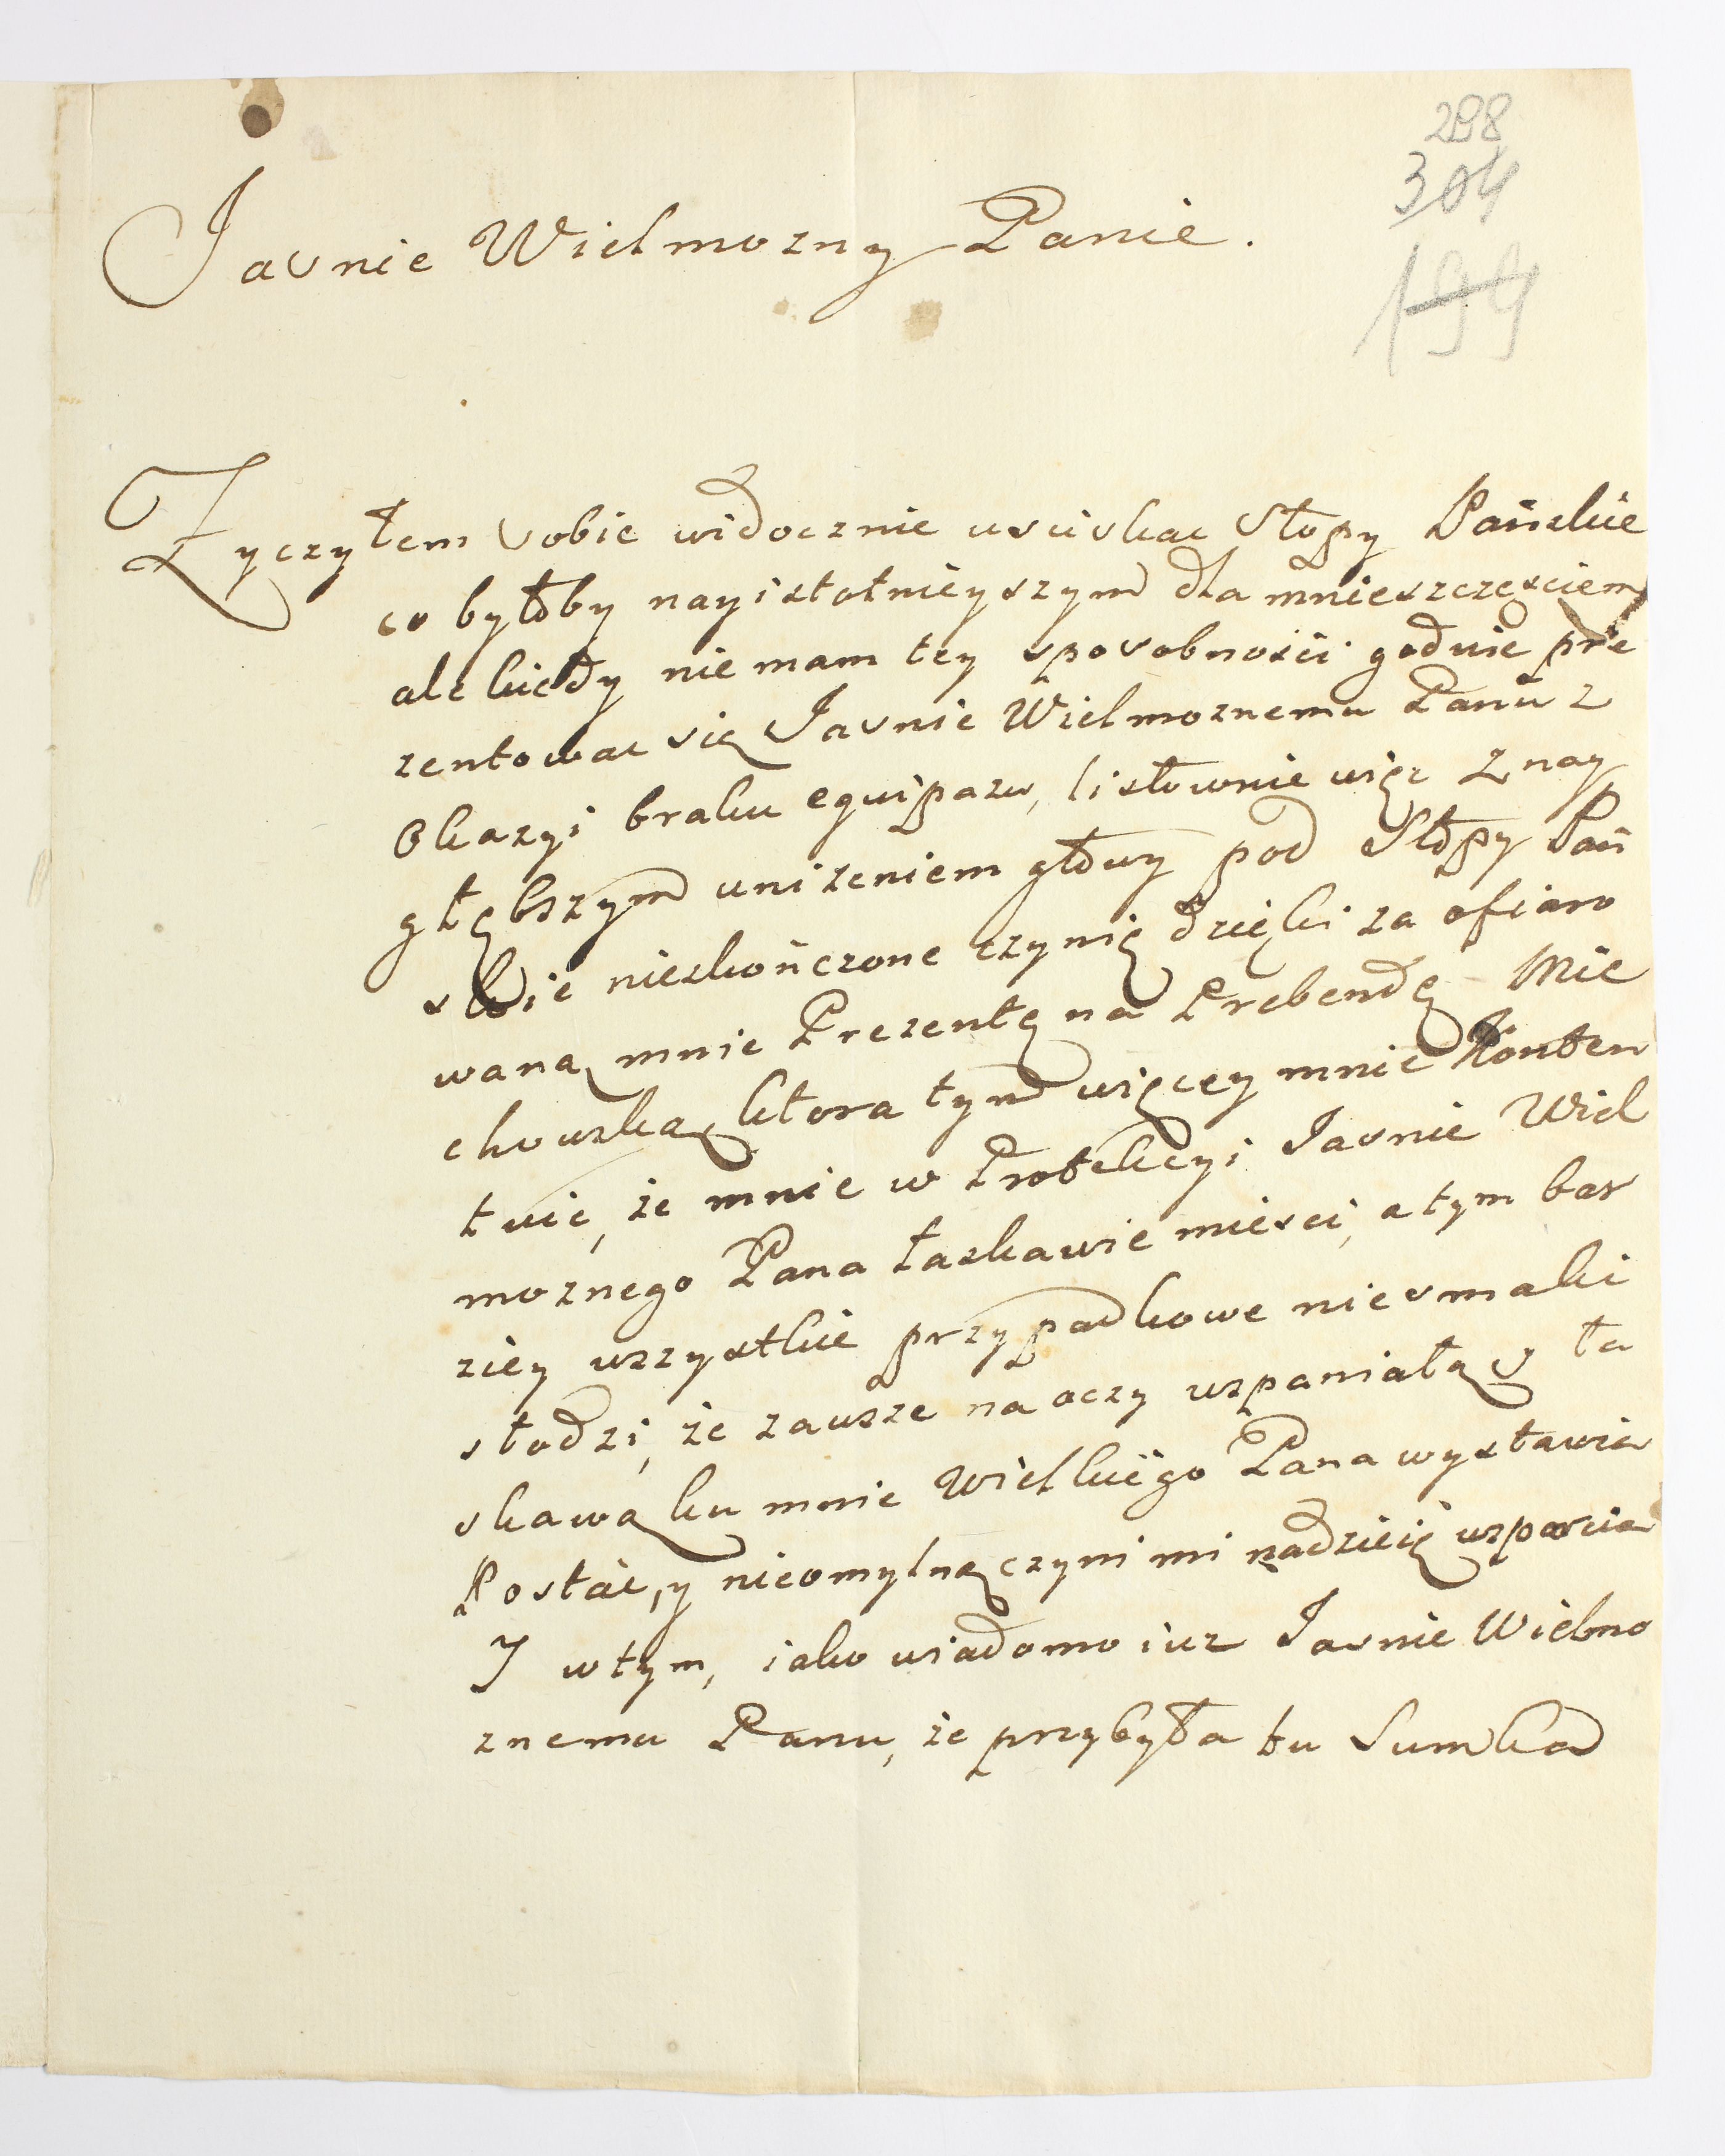 298
304
199
Jasnie Wielmozny Panie.
Zyczyłem sobie widocznie usciskac Stopy Pańskie
co byłoby nayistotnieyszym dla mnie szczęsciem
ale kiedy nie mam tey sposobnosci godnie pre
zentowac się Jasnie Wielmoznemu Panu z
Okazyi braku equipazu, listownie więc z nay
głębszym uniżeniem głowy pod Stopy Pań
skie nieskończone czynię dzięki za ofiaro
waną mnie Prezentę na Prebendę Mie
chowską, ktora tym więcey mnie Konten
tuie, że mnie w Protekcyi Jasnie Wiel
moznego Pana łaskawie miesci, a tym bar
ziey wszystkie przypadkowe niesmaki
słodzi, że zawsze na oczy wspaniałą y ła
skawą ku mnie Wielkiego Pana wystawia
Postać, y nieomylną czyni mi nadzieię wsparcia
J w tym, iako wiadomo iuz Jasnie Wielmo
znemu Panu, że przybyła tu Sumka